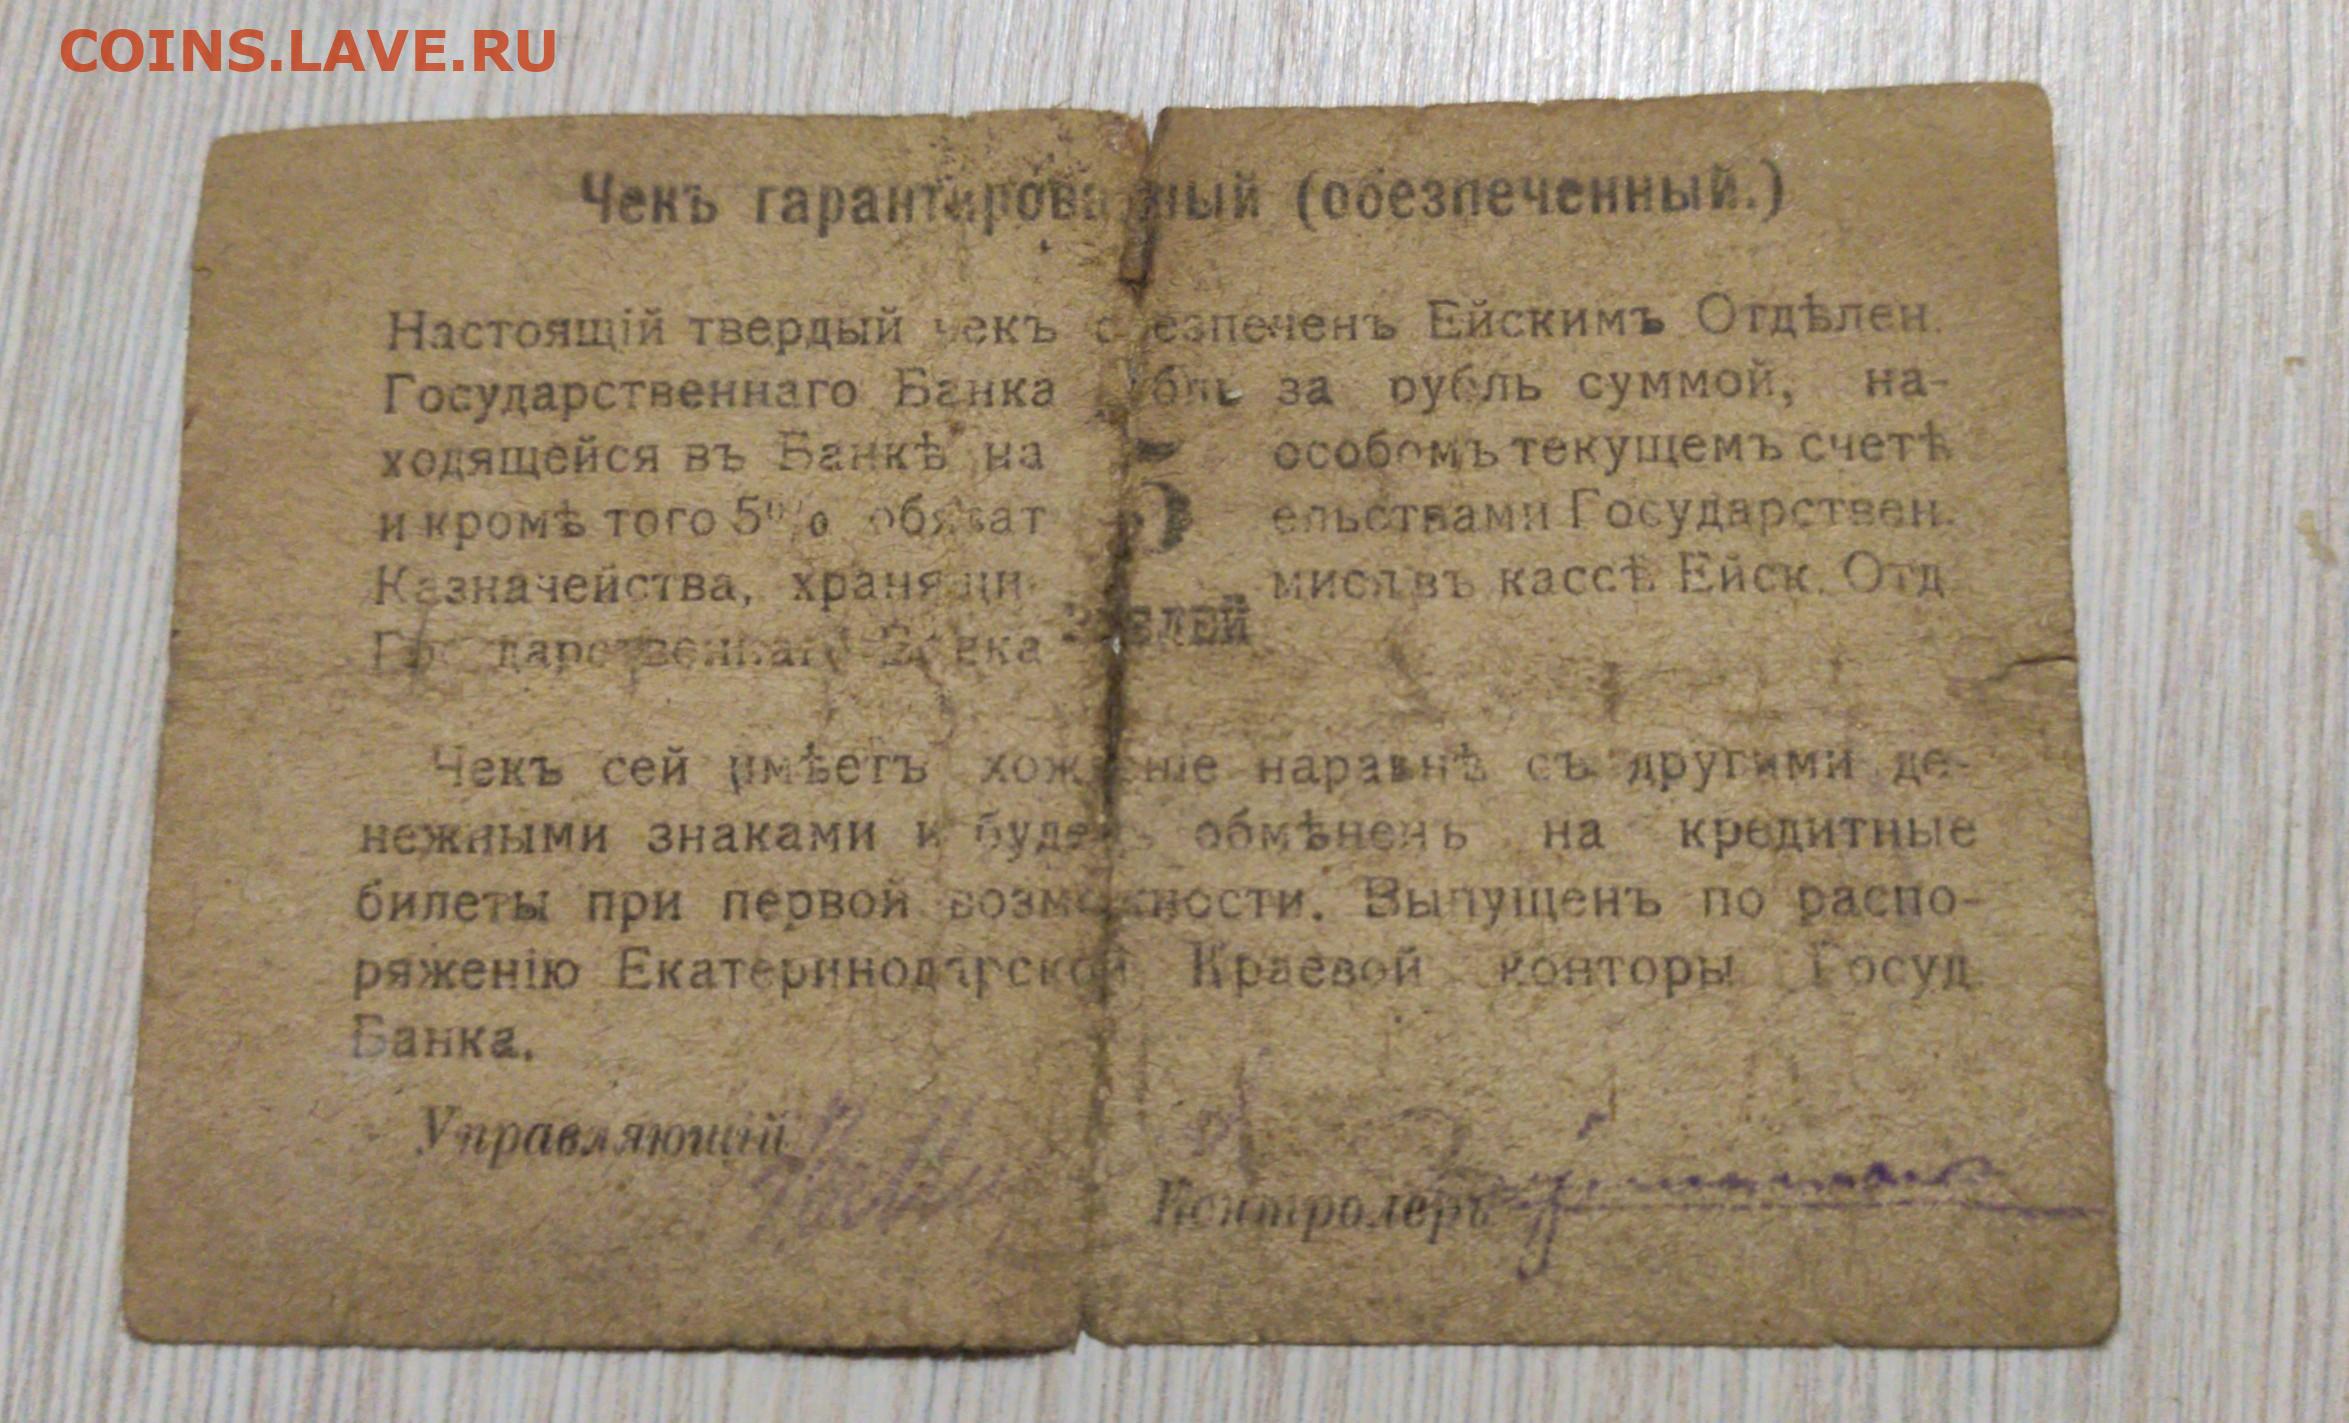 COINS.LAVE.RU
Чекъ гарантированный (обезпеченный.)
Настоящій твердый чекъ обезпеченъ Ейскимъ Отдѣлен.
Государственнаго Банка рубль за рубль суммой, на-
ходящейся въ Банкѣ на особомъ текущемъ счетѣ
и кромѣ того 5% обязательствами Государствен.
Казначейства, хранящимися въ кассѣ Ейск. Отд
Государственнаго Банка
5
РУБЛЕЙ
Чекъ сей имѣетъ хожденіе наравнѣ съ другими де-
нежными знаками и будетъ обмѣненъ на кредитные
билеты при первой возможности. Выпущенъ по распо-
ряженію Екатеринодарской Краевой конторы Госуд.
Банка.
Управляющій
Контролеръ